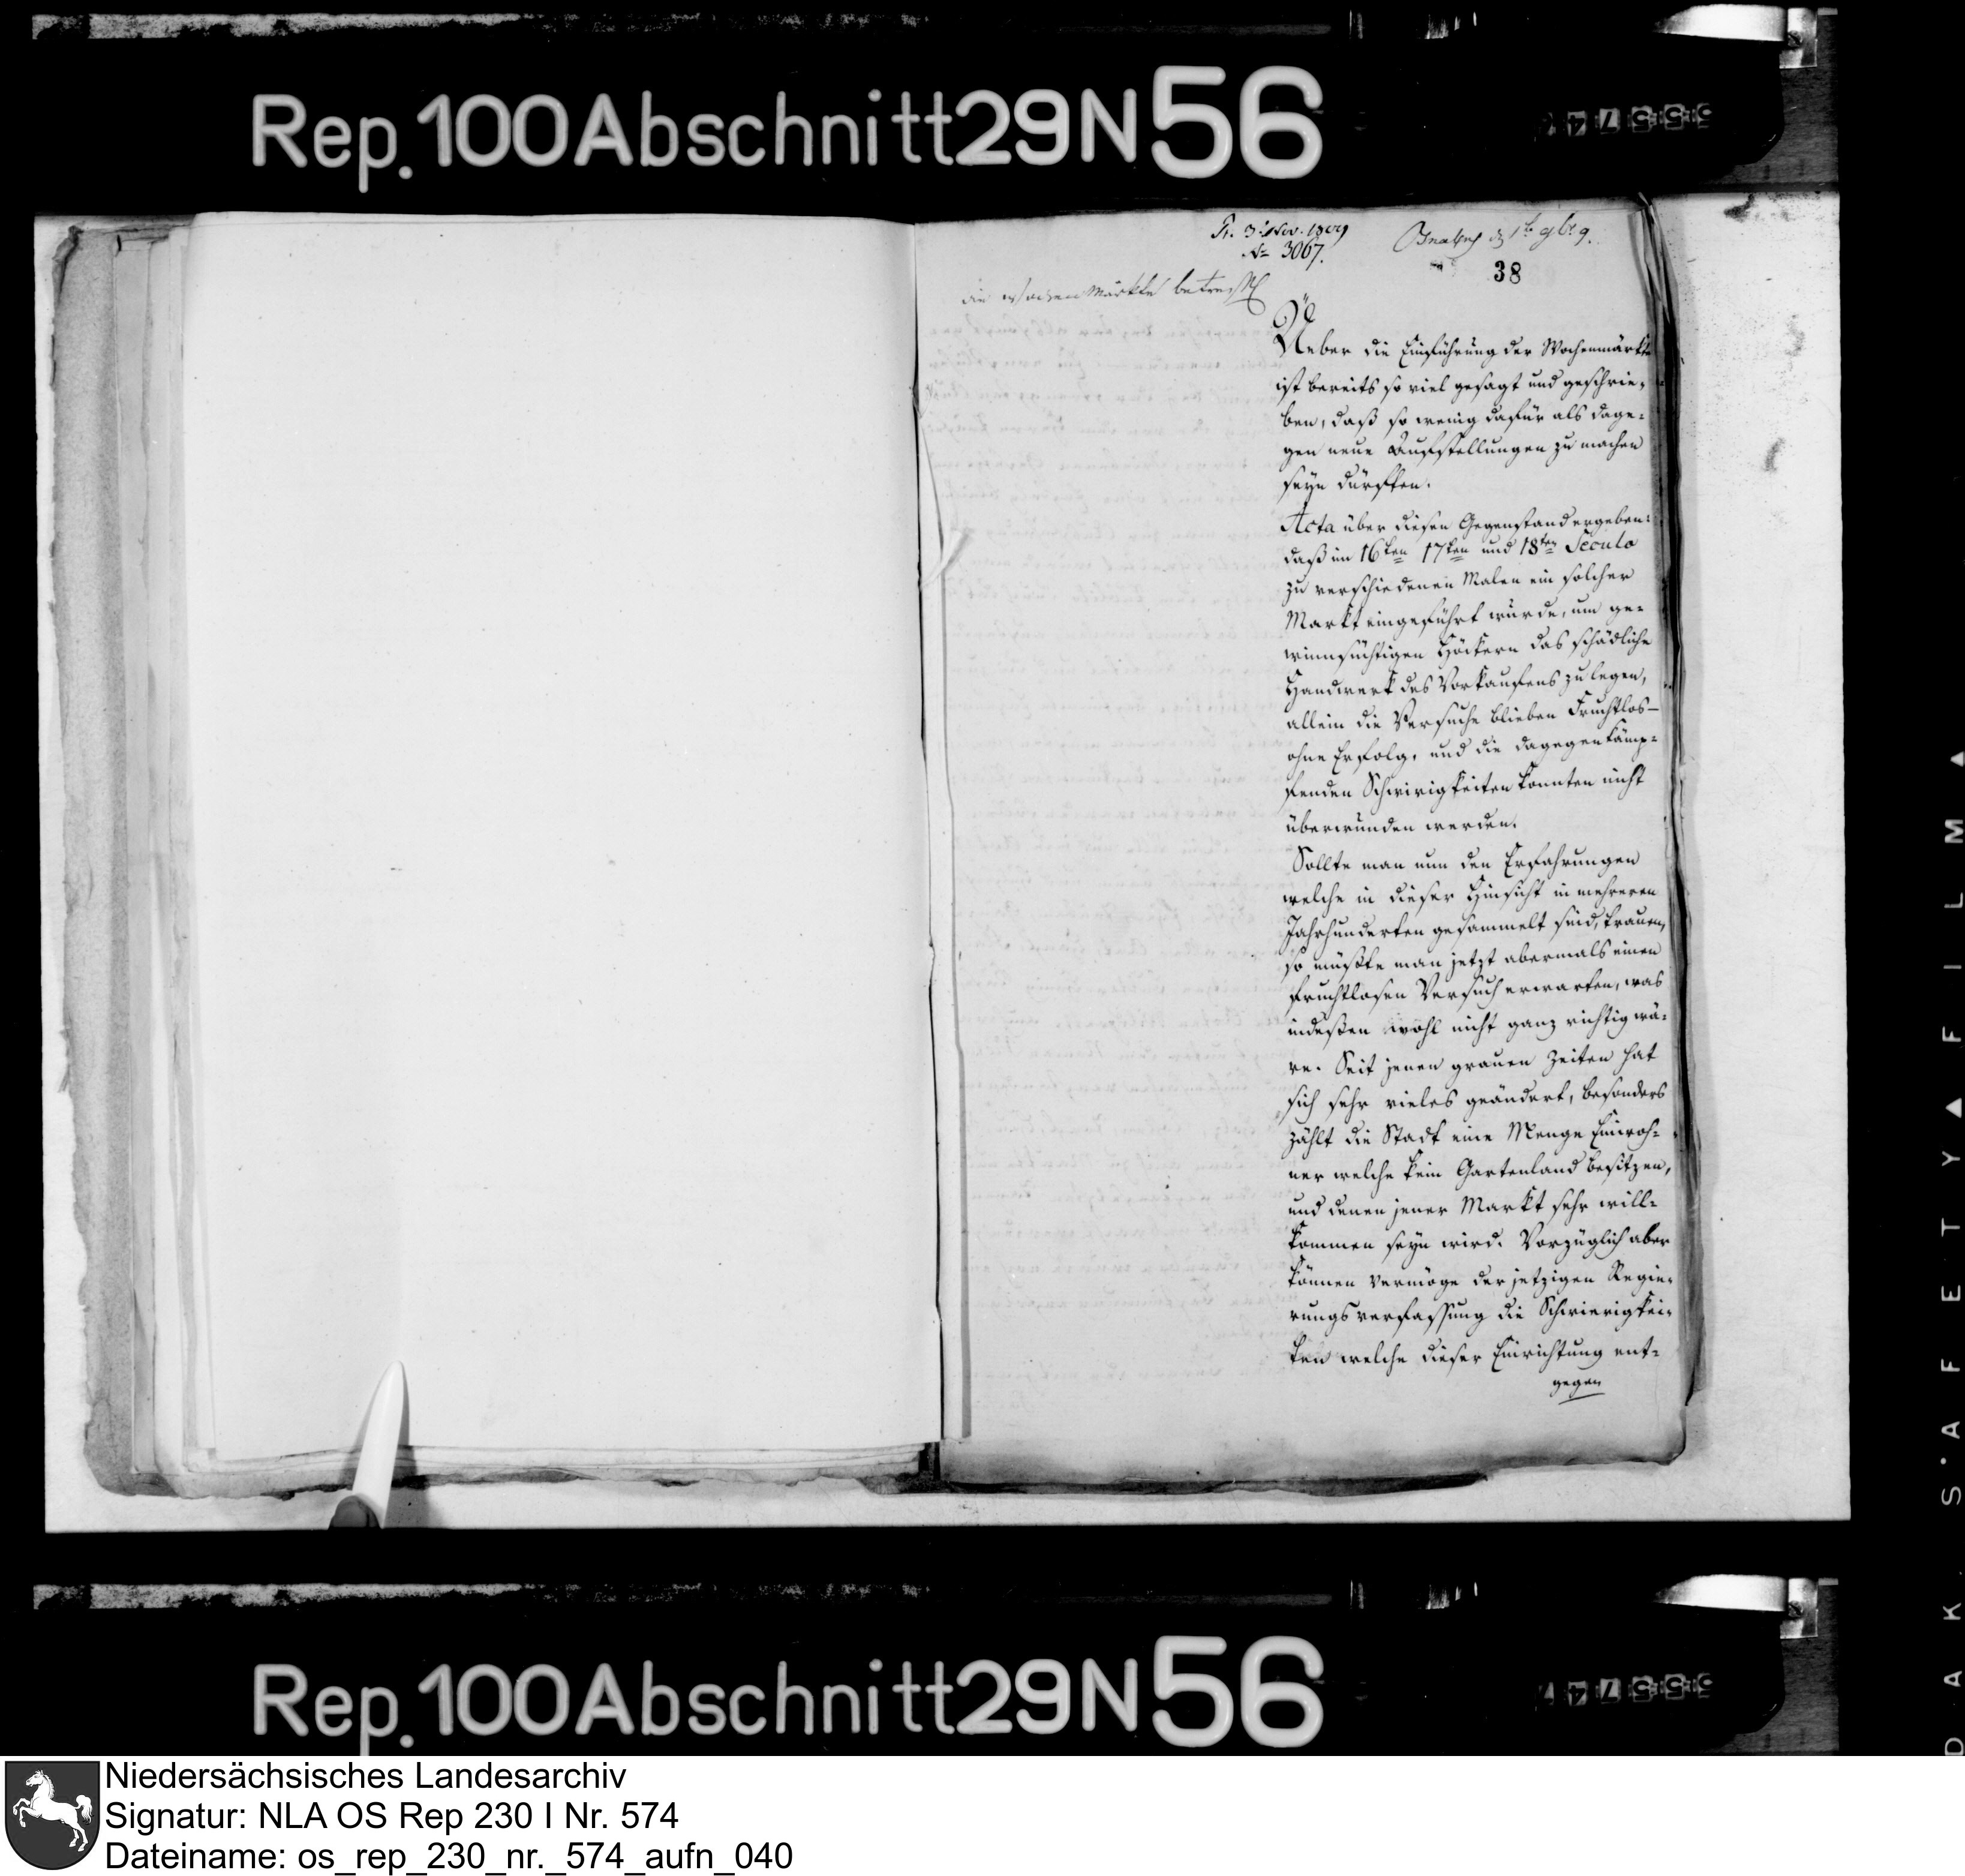 Rep. 100 Abschnitt 29 N 56
Pr. 3. Nov. 1809
No 3067.
38
die Wochen Märkte betreffend
Ueber die Einführung der Wochenmärkte
ist bereits so viel gesagt und geschrie-
ben, daß so wenig dafür als dage-
gen neue Aufstellungen zu machen
seyn dürften.
Acta über diesen Gegenstand ergeben:
daß im 16ten 17ten und 18ten Seculo
zu verschiedenen Malen ein solcher
Markt eingeführt wurde, um ge-
winnsüchtigen Höckern das schädliche
Handwerk des Vorkaufens zu legen,
allein die Versuche blieben Fruchtlos –
ohne Erfolg, und die dagegen käm-
pfenden Schwirigkeiten konnten nicht
überwunden werden.
Sollte man nun den Erfahrungen
welche in dieser Hinsicht in mehreren
Jahrhunderten gesammelt sind, trauen,
so müßte man jetzt abermals einen
fruchtlosen Versuch erwarten, was
indeßen wohl nicht ganz richtig wä-
re. Seit jenen grauen Zeiten hat
sich sehr vieles geändert, besonders
zählt die Stadt eine Menge Einwoh-
ner welche kein Gartenland besitzen,
und denen jener Markt sehr will-
kommen seyn wird. Vorzüglich aber
können vermöge der jetzigen Regie-
rungsverfassung die Schwierigkei-
ten welche dieser Einrichtung ent-
gegen
Rep. 100 Abschnitt 29 N 56
SAFETY FILM
Niedersächsisches Landesarchiv
Signatur: NLA OS Rep 230 I Nr. 574
Dateiname: os_rep_230_nr._574_aufn_040